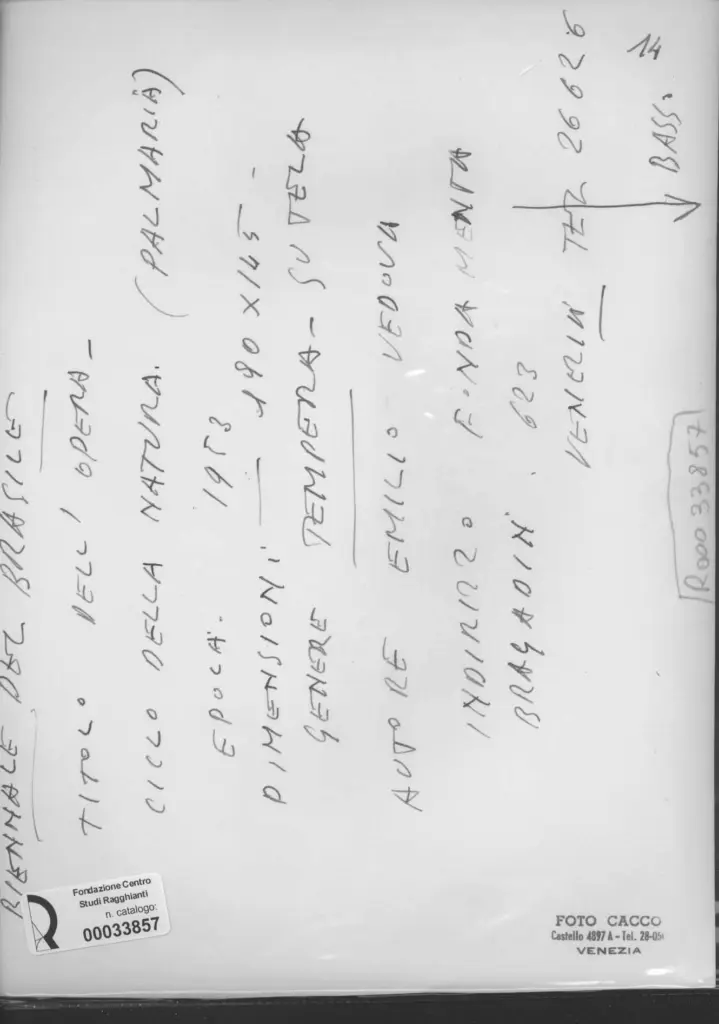 14
BIENNALE DEL BRASILE
TITOLO DELL' OPERA -
CICLO DELLA NATURA. (PALMARIA)
EPOCA. 1953
DIMENSIONI - 190 X 145 -
GENERE TEMPERA - SU TELA
AUTORE EMILIO VEDOVA
INDIRIZZO FONDAMENTA
BRAGADIN. 623
VENEZIA TEL 26626
BASSO
R00033857
Fondazione Centro
Studi Ragghianti
n. catalogo:
00033857
FOTO CACCO
Castello 4897 A - Tel. 28-05
VENEZIA